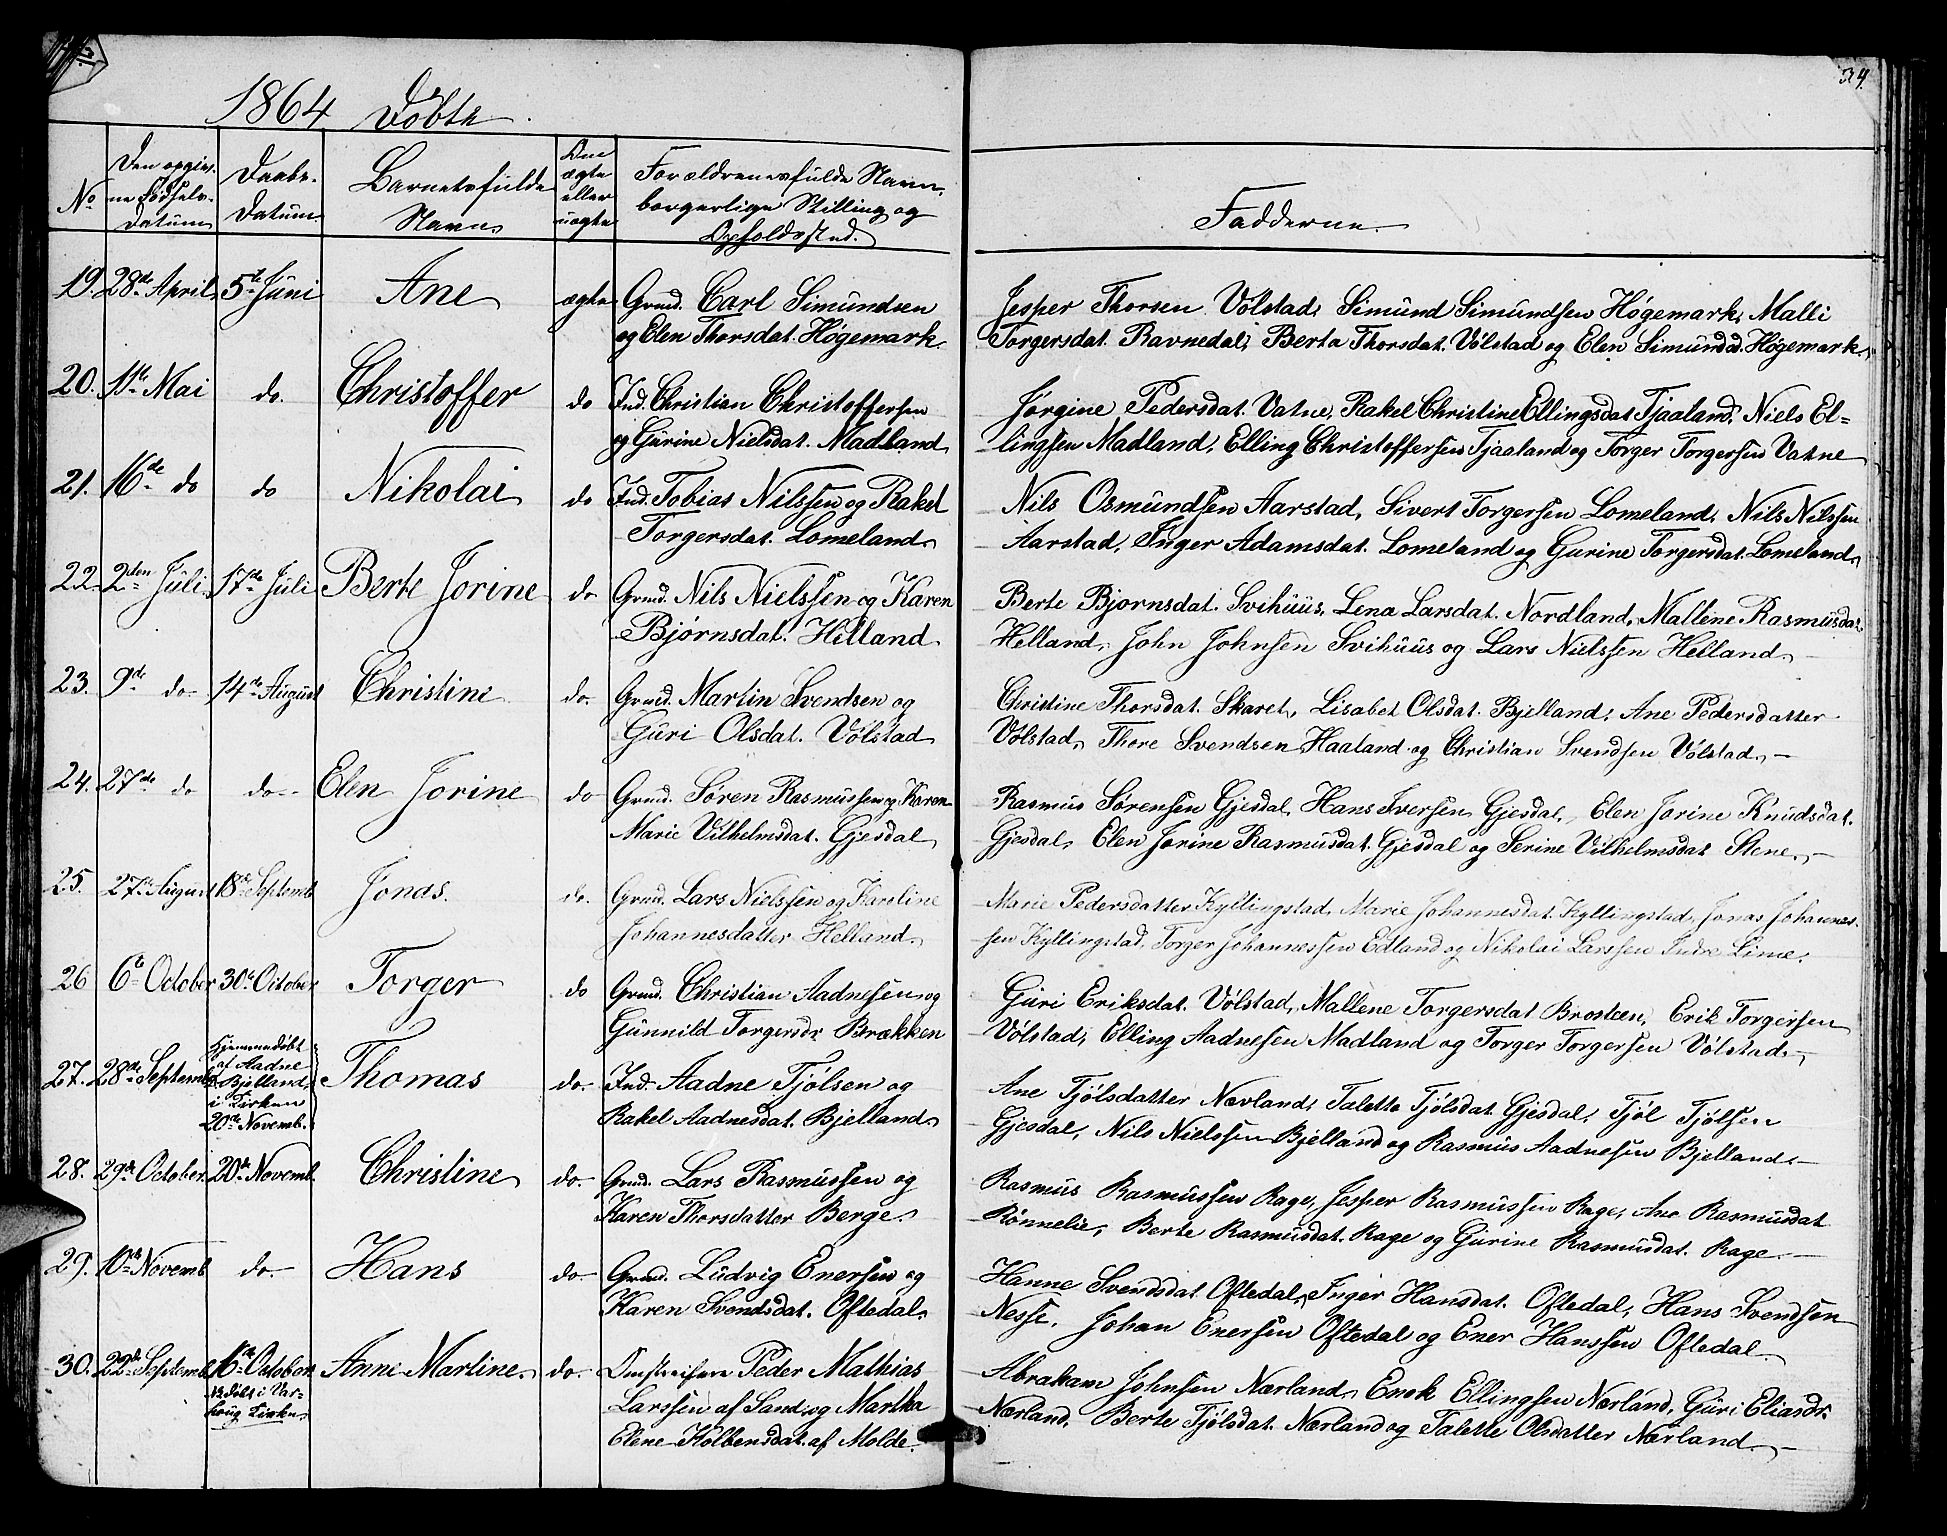 34.
1864 Döbte
No
Den opgiv-
ne Födsels-
datum
Daabs-
Datum
Barnets fulde
Navn
Om
ægte
eller
uægte
Forældrenes fulde Navn,
borgerlige Stilling og
Opholdssted.
Fadderne
19. 28de April 5te Juni Ane ægte Grmd. Carl Simundsen
og Elen Thorsdat. Høgemark
Jesper Thorsen Vølstad, Simund Simundsen Høgemark, Malli
Torgersdat. Ravnedal, Berta Thorsdat. Vølstad og Elen Simundsd. Høgemark
20. 11te Mai do. Christoffer do Ind. Christian Christoffersen
og Gurine Nielsdat. Madland
Jørgine Pedersdat. Vatne, Rakel Christine Ellingsdat. Tjaaland, Niels El-
lingsen Madland, Elling Christoffersen Tjaaland og Torger Torgersen Vatne
21. 16de do do Nikolai do Ind. Tobias Nilssen og Rakel
Torgersdat. Lomeland
Nils Osmundsen Aarstad, Sivert Torgersen Lomeland, Nils Nilssen
Aarstad, Inger Adamsdat. Lomeland og Gurine Torgersdat. Lomeland
22. 2den Juli 17de Juli Berte Jorine do Grmd. Nils Nielssen og Karen
Bjørnsdat. Helland
Berte Bjornsdat. Svihuus, Lena Larsdat. Nordland, Mallene Rasmusdat.
Helland, John Johnsen Svihuus og Lars Nielssen Helland
23. 9de do 14de August Christine do. Grmd. Martin Svendsen og
Guri Olsdat. Vølstad
Christine Thorsdat. Skaret, Lisabet Olsdat. Bjelland, Ane Pedersdatter
Vølstad, Thore Svendsen Haaland og Christian Svendsen Vølstad.
24. 27de do do Elen Jorine do Grmd. Søren Rasmussen og Karen
Marie Vilhelmsdat. Gjesdal
Rasmus Sørensen Gjesdal, Hans Iversen Gjesdal, Elen Jorine Knudsdat.
Gjesdal, Elen Jorine Rasmusdat. Gjesdal og Serine Vilhelmsdat Stene.
25. 27de August 18de Septemb. Jonas. do. Grmd. Lars Nielssen og Karoline
Johannesdatter Helland
Marie Pedersdatter Kyllingstad, Marie Johannesdat. Kyllingstad, Jonas Johannes-
sen Kyllingstad, Torger Johannessen Edland og Nikolai Larssen Indre Lime.
26 6te October 30te October Torger do Grmd. Christian Aadnesen og
Gunnild Torgersdr Brækken
Guri Eriksdat. Vølstad, Mallene Torgersdat Brosteen, Erik Torgersen
Vølstad, Elling Aadnesen Madland og Torger Torgersen Vølstad.
27. 28de Septemb. Hjemmedöbt
af Aadne
Bjelland,
i Kirken
20de Novemb. Thomas do. Ind. Aadne Tjølsen og
Rakel Aadnesdat. Bjelland
Ane Tjölsdatter Nævland, Talette Tjölsdat. Gjesdal, Tjöl Tjölsen
Gjesdal, Nils Nielssen Bjelland og Rasmus Aadnesen Bjelland.
28. 29de October 20de Novemb. Christine do. Grmd. Lars Rasmussen og
Karen Thorsdatter Berge.
Rasmus Rasmussen Rage, Jesper Rasmussen Rage, Ane Rasmusdat
Rönnelie, Berte Rasmusdat. Rage og Gurine Rasmusdat. Rage.
29. 10de Novemb do. Hans do Grmd. Ludvig Enersen og
Karen Svendsdat. Oftedal.
Hanne Svendsdat Oftedal, Inger Hansdat. Oftedal, Hans Svendsen
Nesse, Johan Enersen Oftedal og Ener Hanssen Oftedal
30. 22de Septemb. 16de October
døbt i Var-
houg Kirke Anne Martine do. Omstreifere Peder Mathias
Larssen af Sand og Martha
Elene Kolbensdat. af Molde.
Abraham Johnsen Nærland, Enok Ellingsen Nærland, Guri Eliasdr.
Nærland, Berte Tjølsdat. Nærland og Talette Olsdatter Nærland